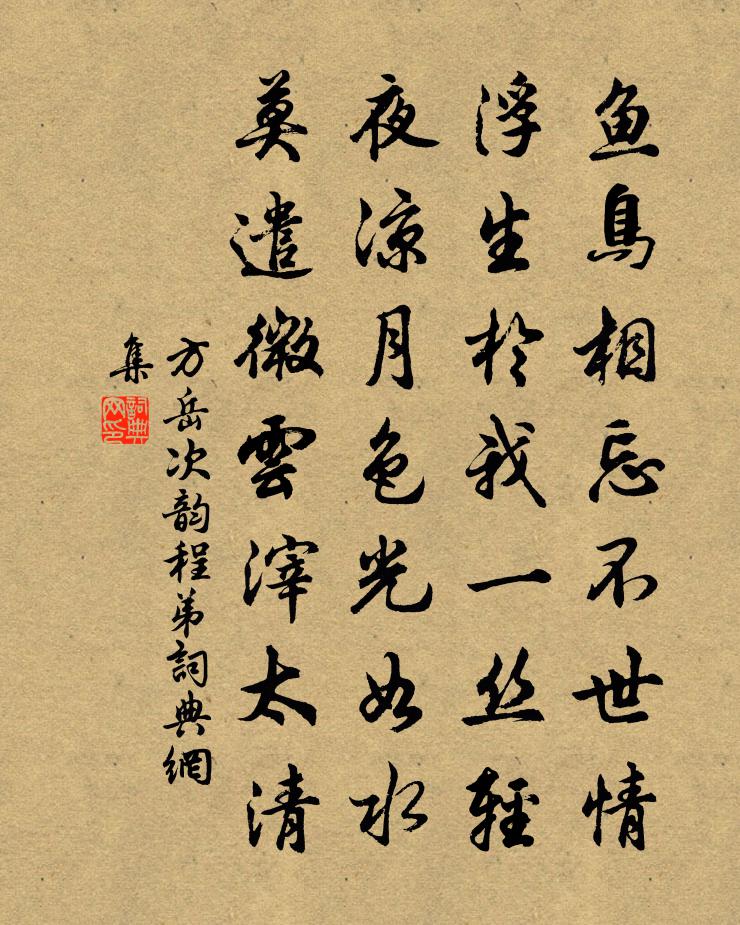 鱼鳥相忘不世情
浮生於我一丝輕
夜凉月色光如水
莫遣微雲滓太清
方岳次韵程弟詞典網
集
詞典
网印